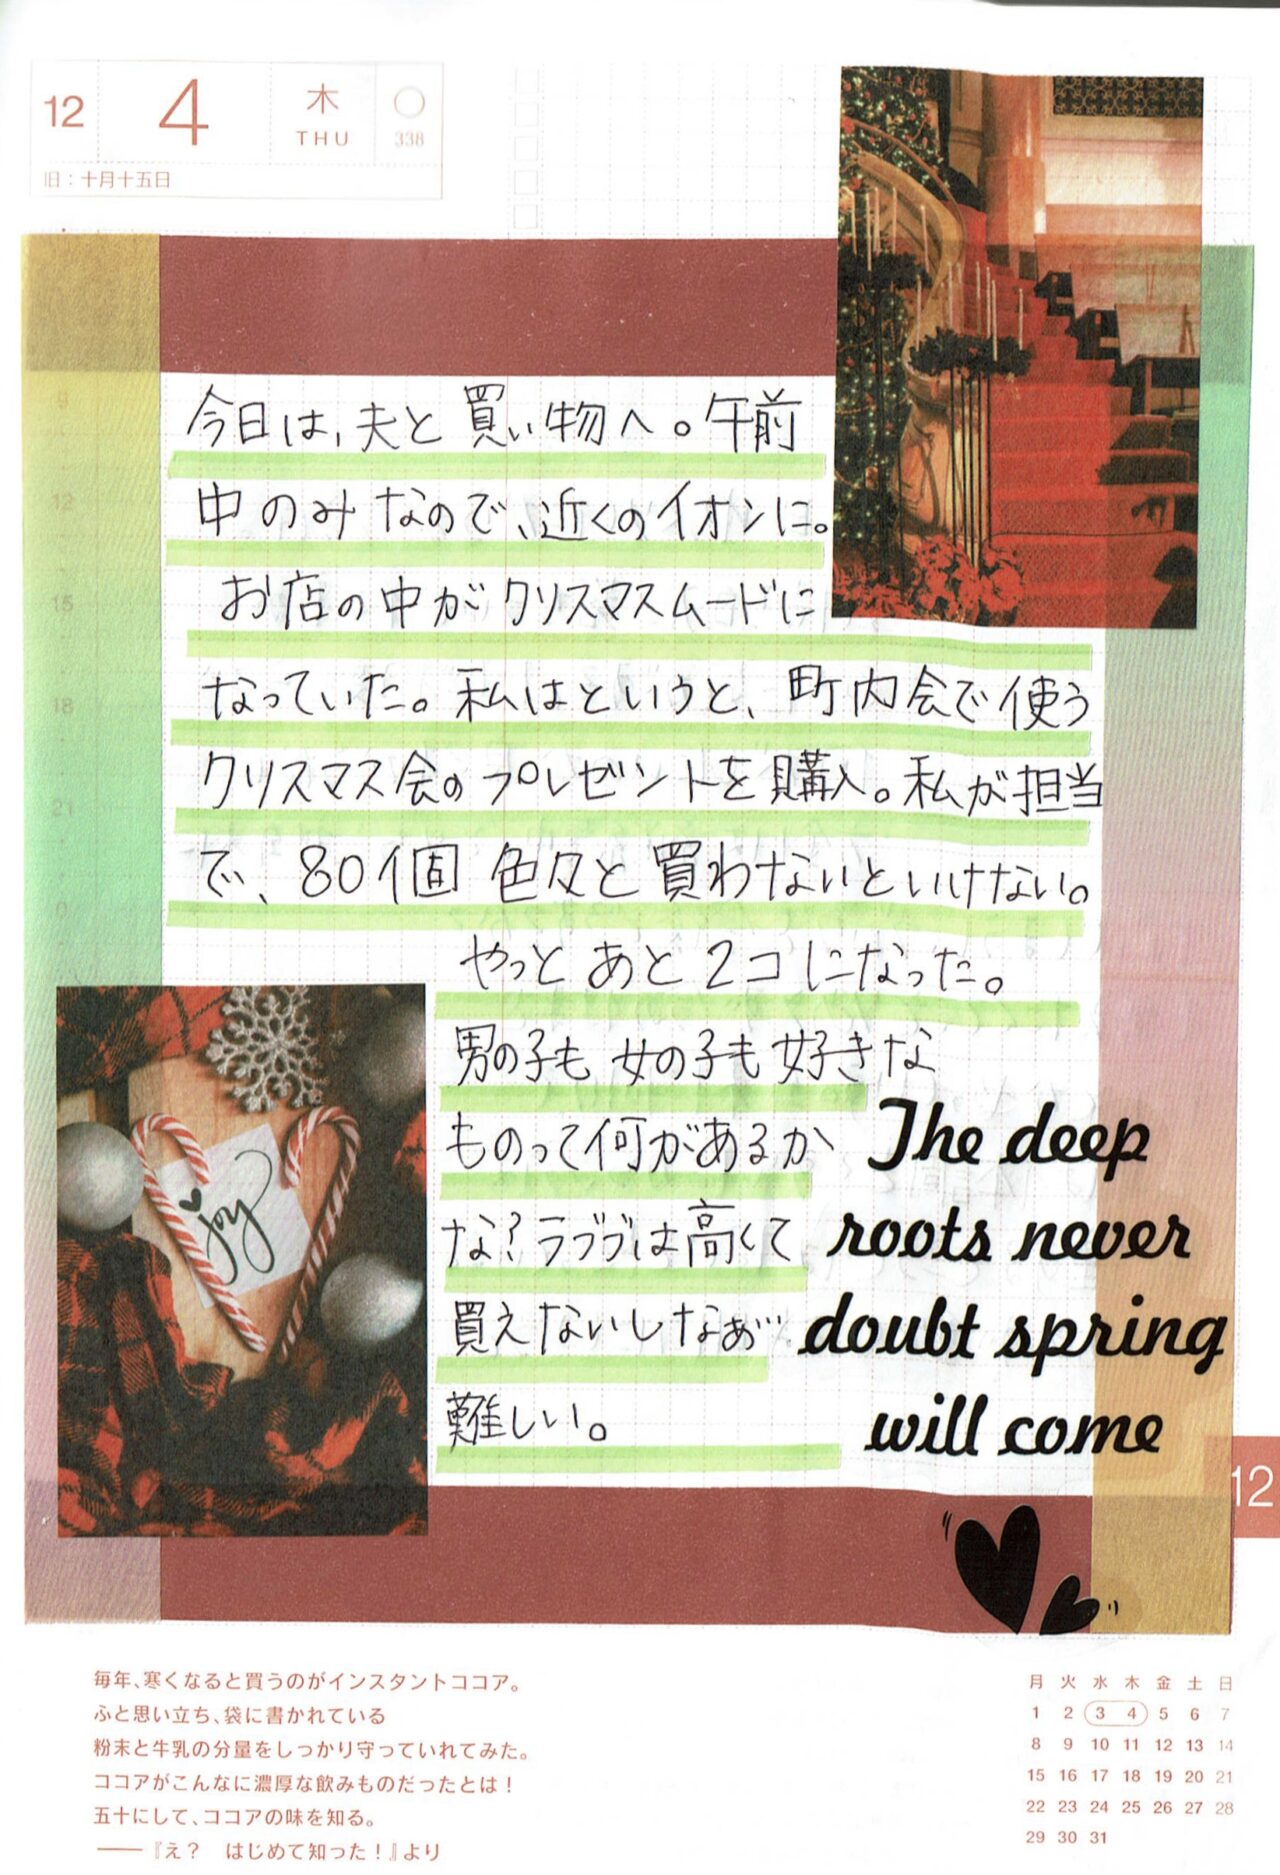 12 4 木 THU 338
旧:十月十五日
今日は、夫と買い物へ。午前
中のみなので、近くのイオンに。
お店の中がクリスマスムードに
なっていた。私はというと、町内会で使う
クリスマス会のプレゼントを購入。私が担当
で、80個 色々と買わないといけない。
やっとあと2コになった。
男の子も女の子も好きな
ものって何があるか
な?ラブブは高くて
買えないしなぁ…
難しい。
The deep
roots never
doubt spring
will come
joy
9
12
15
18
21
0
12
毎年、寒くなると買うのがインスタントココア。
ふと思い立ち、袋に書かれている
粉末と牛乳の分量をしっかり守っていれてみた。
ココアがこんなに濃厚な飲みものだったとは!
五十にして、ココアの味を知る。
──『え? はじめて知った!』より
月 火 水 木 金 土 日
1 2 3 4 5 6 7
8 9 10 11 12 13 14
15 16 17 18 19 20 21
22 23 24 25 26 27 28
29 30 31